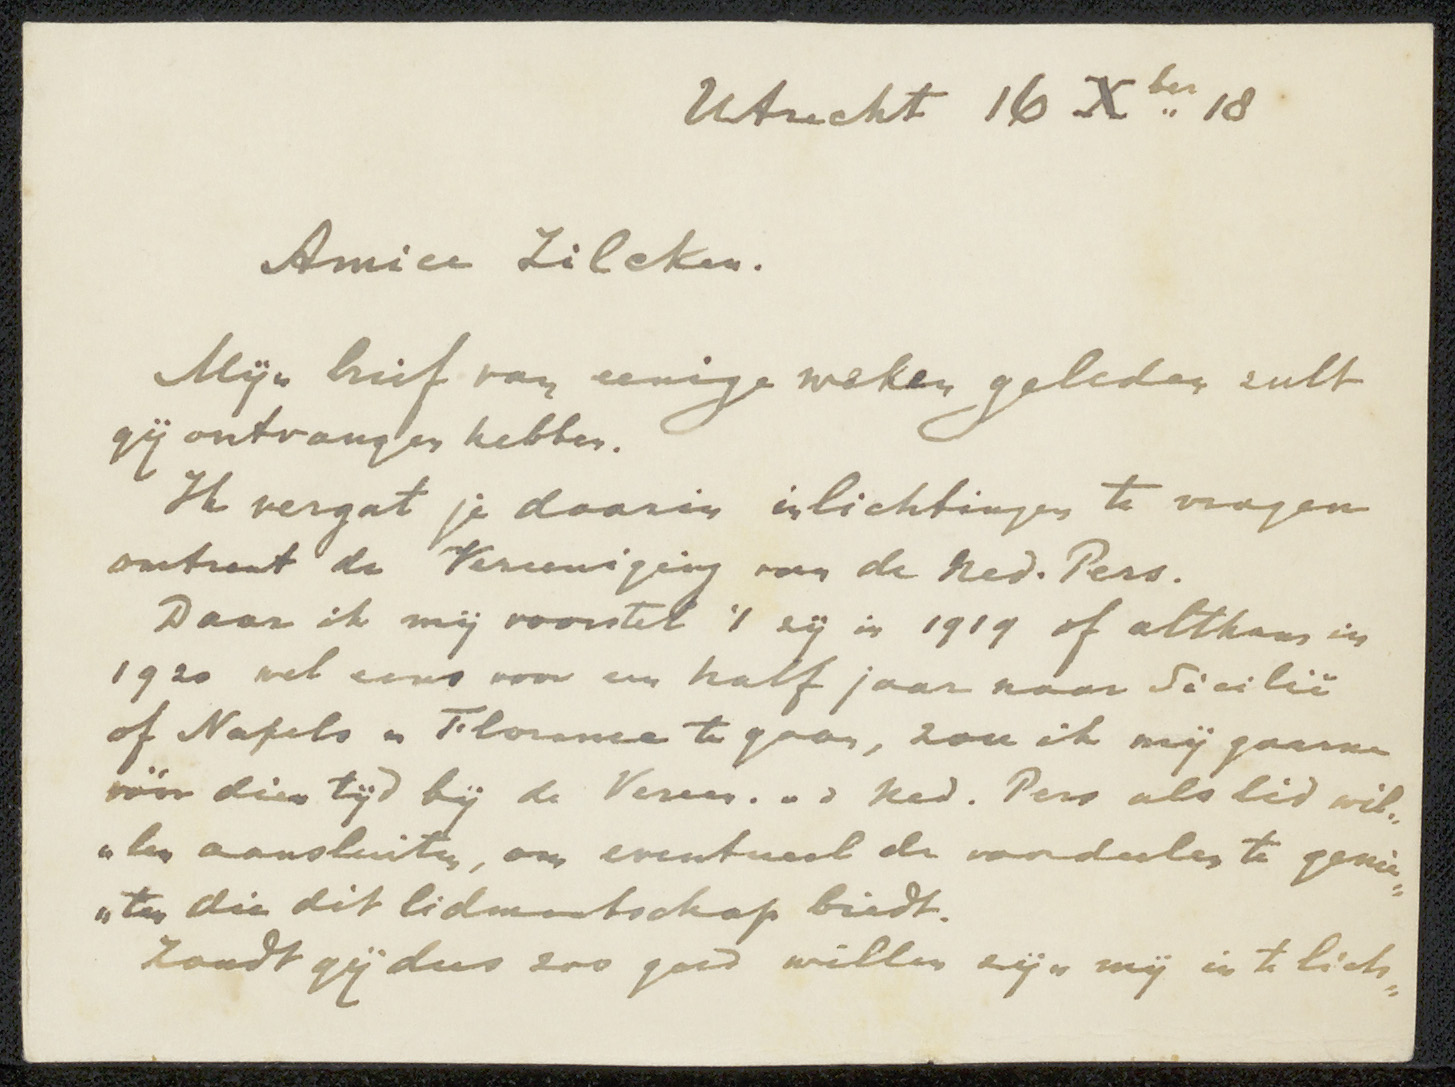 Utrecht 16 Xber 18
Amice Zilcken.
Mijn brief van eenige weken geleden zult
gij ontvangen hebben.
Ik vergat je daarin inlichtingen te vragen
omtrent de Vereeniging van de Ned. Pers.
Daar ik mij voorstel 't zij in 1919 of althans in
1920 wel eens voor een half jaar naar Sicilië
of Napels en Florence te gaan, zou ik mij gaarne
vóór dien tijd bij de Vereen. v. d Ned. Pers als lid wil„
„len aansluiten, om eventueel de voordeelen te genie„
„ten die dit lidmaatschap biedt.
Zoudt gij dus zoo goed willen zijn mij in te lich„